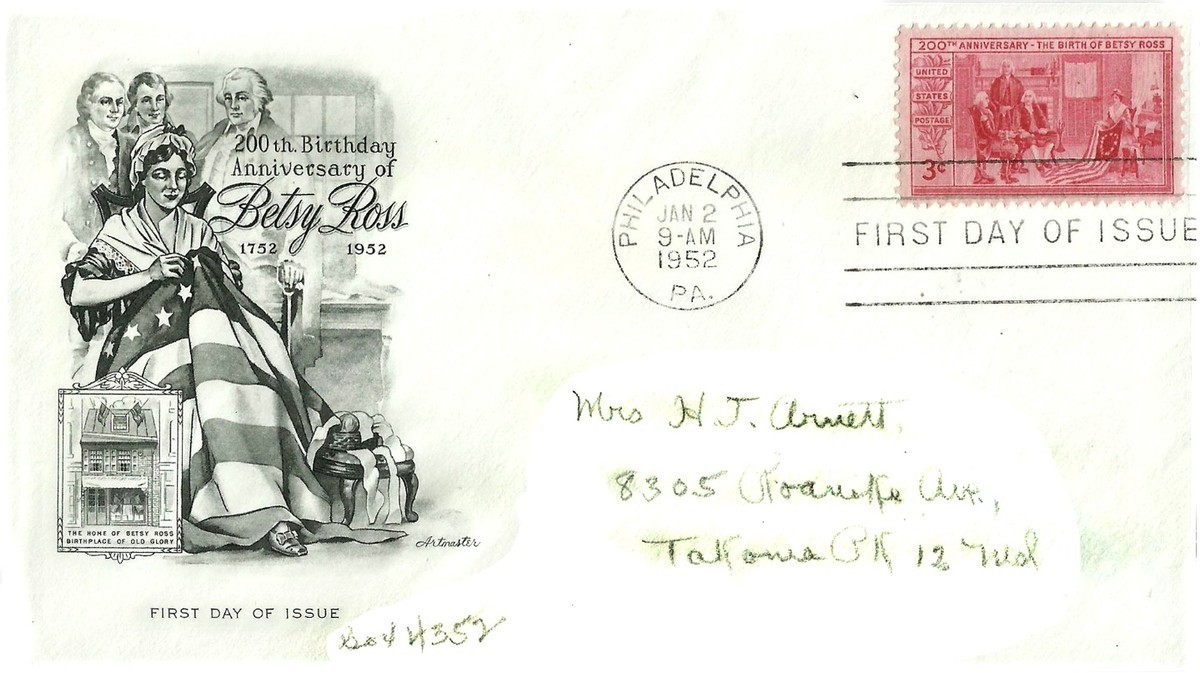 200th. Birthday
Anniversary of
Betsy Ross
1752 1952
THE HOME OF BETSY ROSS
BIRTHPLACE OF OLD GLORY
Artmaster
FIRST DAY OF ISSUE
200TH ANNIVERSARY - THE BIRTH OF BETSY ROSS
UNITED
STATES
POSTAGE
3¢
PHILADELPHIA
JAN 2
9-AM
1952
PA.
FIRST DAY OF ISSUE
Mrs H. J. Arnett,
8305 Roanoke Ave.,
Takoma Pk 12 Md
Box 4352